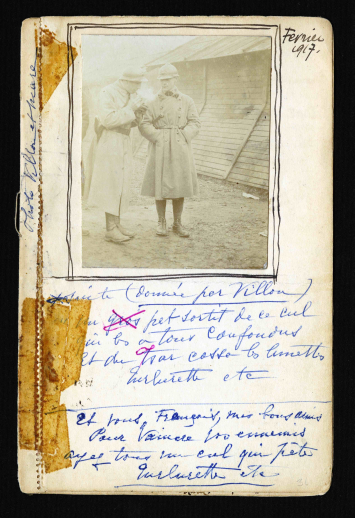 Février
1917.
Photo Villon et
(donnée par Villon)
gros pet sortit de ce cul
tous confondus
Et du Tzar cassa les lunettes
Turlurette etc
Et vous, Français, mes bons amis
Pour vaincre vos ennemis
ayez tous un cul qui pète
Turlurette etc